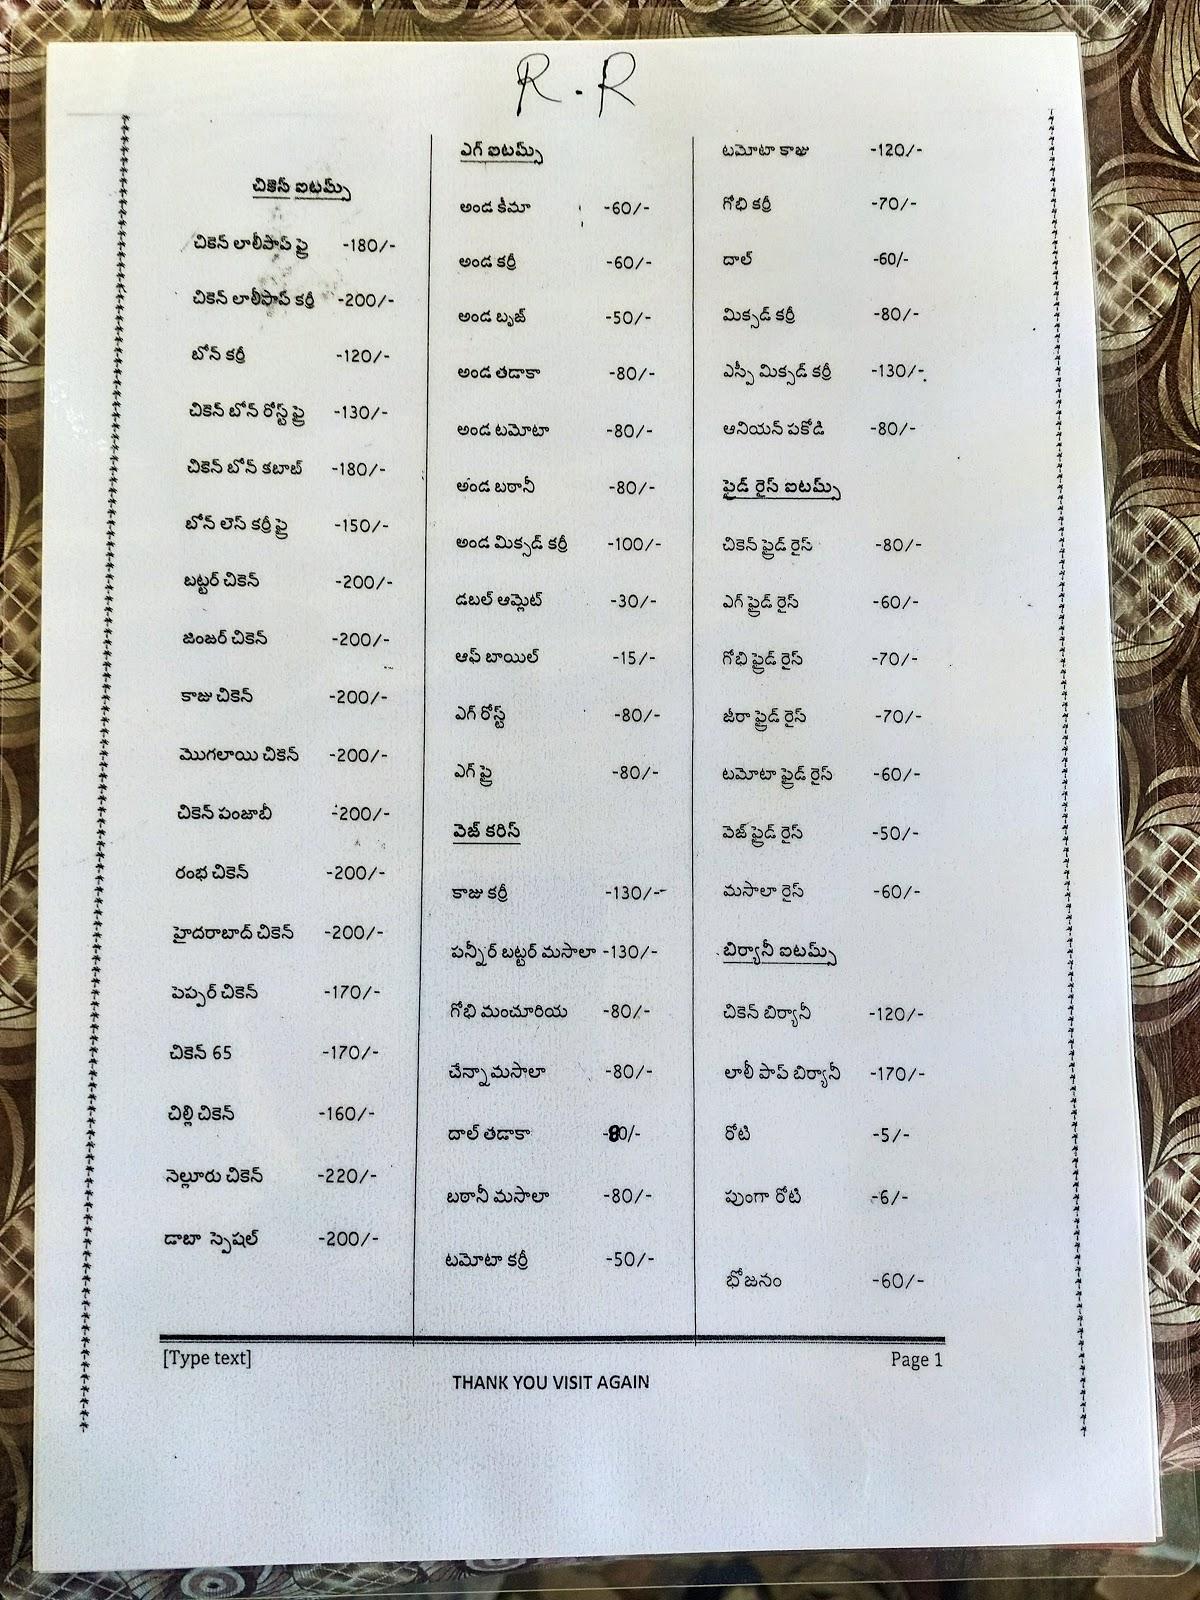 R.R
చికెన్ ఐటమ్స్
చికెన్ లాలీపాప్ ఫ్రై -180/-
చికెన్ లాలీపాప్ కర్రీ -200/-
బోన్ కర్రీ -120/-
చికెన్ బోన్ రోస్ట్ ఫ్రై -130/-
చికెన్ బోన్ కబాబ్ -180/-
బోన్ లెస్ కర్రీ ఫ్రై -150/-
బట్టర్ చికెన్ -200/-
జింజర్ చికెన్ -200/-
కాజు చికెన్ -200/-
మొగలాయి చికెన్ -200/-
చికెన్ పంజాబీ -200/-
రంభ చికెన్ -200/-
హైదరాబాద్ చికెన్ -200/-
పెప్పర్ చికెన్ -170/-
చికెన్ 65 -170/-
చిల్లి చికెన్ -160/-
నెల్లూరు చికెన్ -220/-
డాబా స్పెషల్ -200/-
ఎగ్ ఐటమ్స్
అండ కీమా -60/-
అండ కర్రీ -60/-
అండ బృజ్ -50/-
అండ తడాకా -80/-
అండ టమోటా -80/-
అండ బఠానీ -80/-
అండ మిక్సడ్ కర్రీ -100/-
డబల్ ఆమ్లెట్ -30/-
ఆఫ్ బాయిల్ -15/-
ఎగ్ రోస్ట్ -80/-
ఎగ్ ఫ్రై -80/-
వెజ్ కరిస్
కాజు కర్రీ -130/-
పన్నీర్ బట్టర్ మసాలా -130/-
గోభి మంచూరియ -80/-
చేన్నా మసాలా -80/-
దాల్ తడాకా -80/-
బఠానీ మసాలా -80/-
టమోటా కర్రీ -50/-
టమోటా కాజు -120/-
గోభి కర్రీ -70/-
దాల్ -60/-
మిక్సడ్ కర్రీ -80/-
ఎస్పీ మిక్సడ్ కర్రీ -130/-
ఆనియన్ పకోడి -80/-
ఫ్రైడ్ రైస్ ఐటమ్స్
చికెన్ ఫ్రైడ్ రైస్ -80/-
ఎగ్ ఫ్రైడ్ రైస్ -60/-
గోభి ఫ్రైడ్ రైస్ -70/-
జీరా ఫ్రైడ్ రైస్ -70/-
టమోటా ఫ్రైడ్ రైస్ -60/-
వెజ్ ఫ్రైడ్ రైస్ -50/-
మసాలా రైస్ -60/-
బిర్యానీ ఐటమ్స్
చికెన్ బిర్యానీ -120/-
లాలీ పాప్ బిర్యానీ -170/-
రోటి -5/-
పుంగా రోటి -6/-
భోజనం -60/-
[Type text] Page 1
THANK YOU VISIT AGAIN